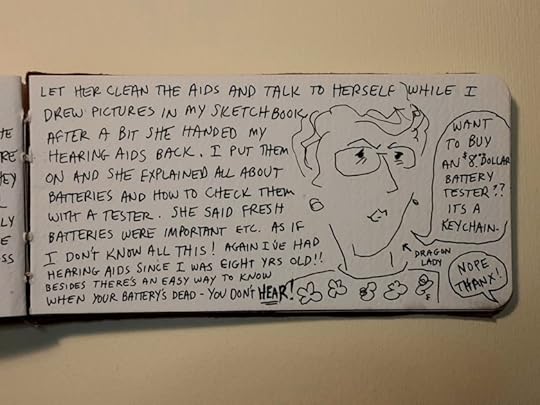 LET HER CLEAN THE AIDS AND TALK TO HERSELF WHILE I
DREW PICTURES IN MY SKETCHBOOK
AFTER A BIT SHE HANDED MY
HEARING AIDS BACK. I PUT THEM
ON AND SHE EXPLAINED ALL ABOUT
BATTERIES AND HOW TO CHECK THEM
WITH A TESTER. SHE SAID FRESH
BATTERIES WERE IMPORTANT ETC. AS IF
I DON'T KNOW ALL THIS! AGAIN I'VE HAD
HEARING AIDS SINCE I WAS EIGHT YRS OLD!!
BESIDES THERE'S AN EASY WAY TO KNOW
WHEN YOUR BATTERY'S DEAD - YOU DON'T HEAR!
WANT
TO BUY
AN $8. DOLLAR
BATTERY
TESTER??
ITS A
KEYCHAIN.
DRAGON
LADY
NOPE
THANX!